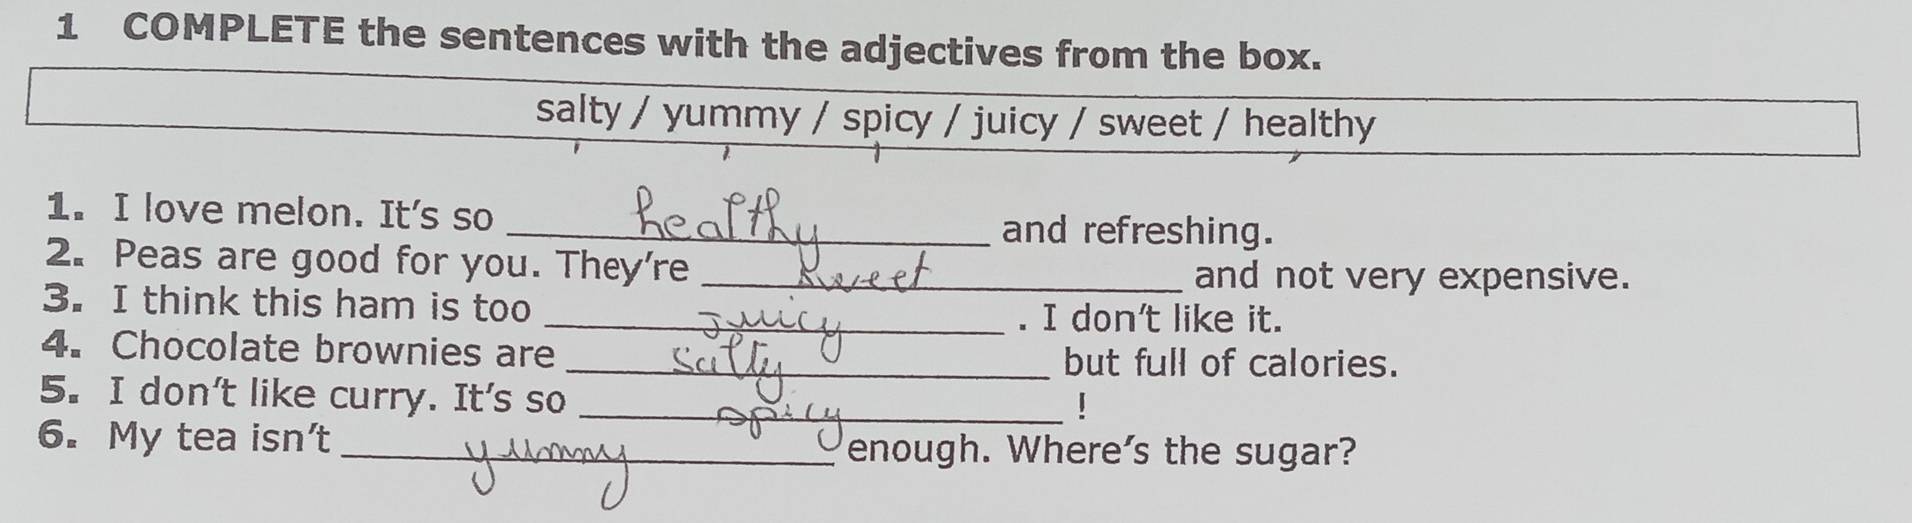 1 COMPLETE the sentences with the adjectives from the box.
salty / yummy / spicy / juicy / sweet / healthy
1. I love melon. It's so healthy and refreshing.
2. Peas are good for you. They're sweet and not very expensive.
3. I think this ham is too juicy. I don't like it.
4. Chocolate brownies are salty but full of calories.
5. I don't like curry. It's so spicy!
6. My tea isn't yummy enough. Where's the sugar?